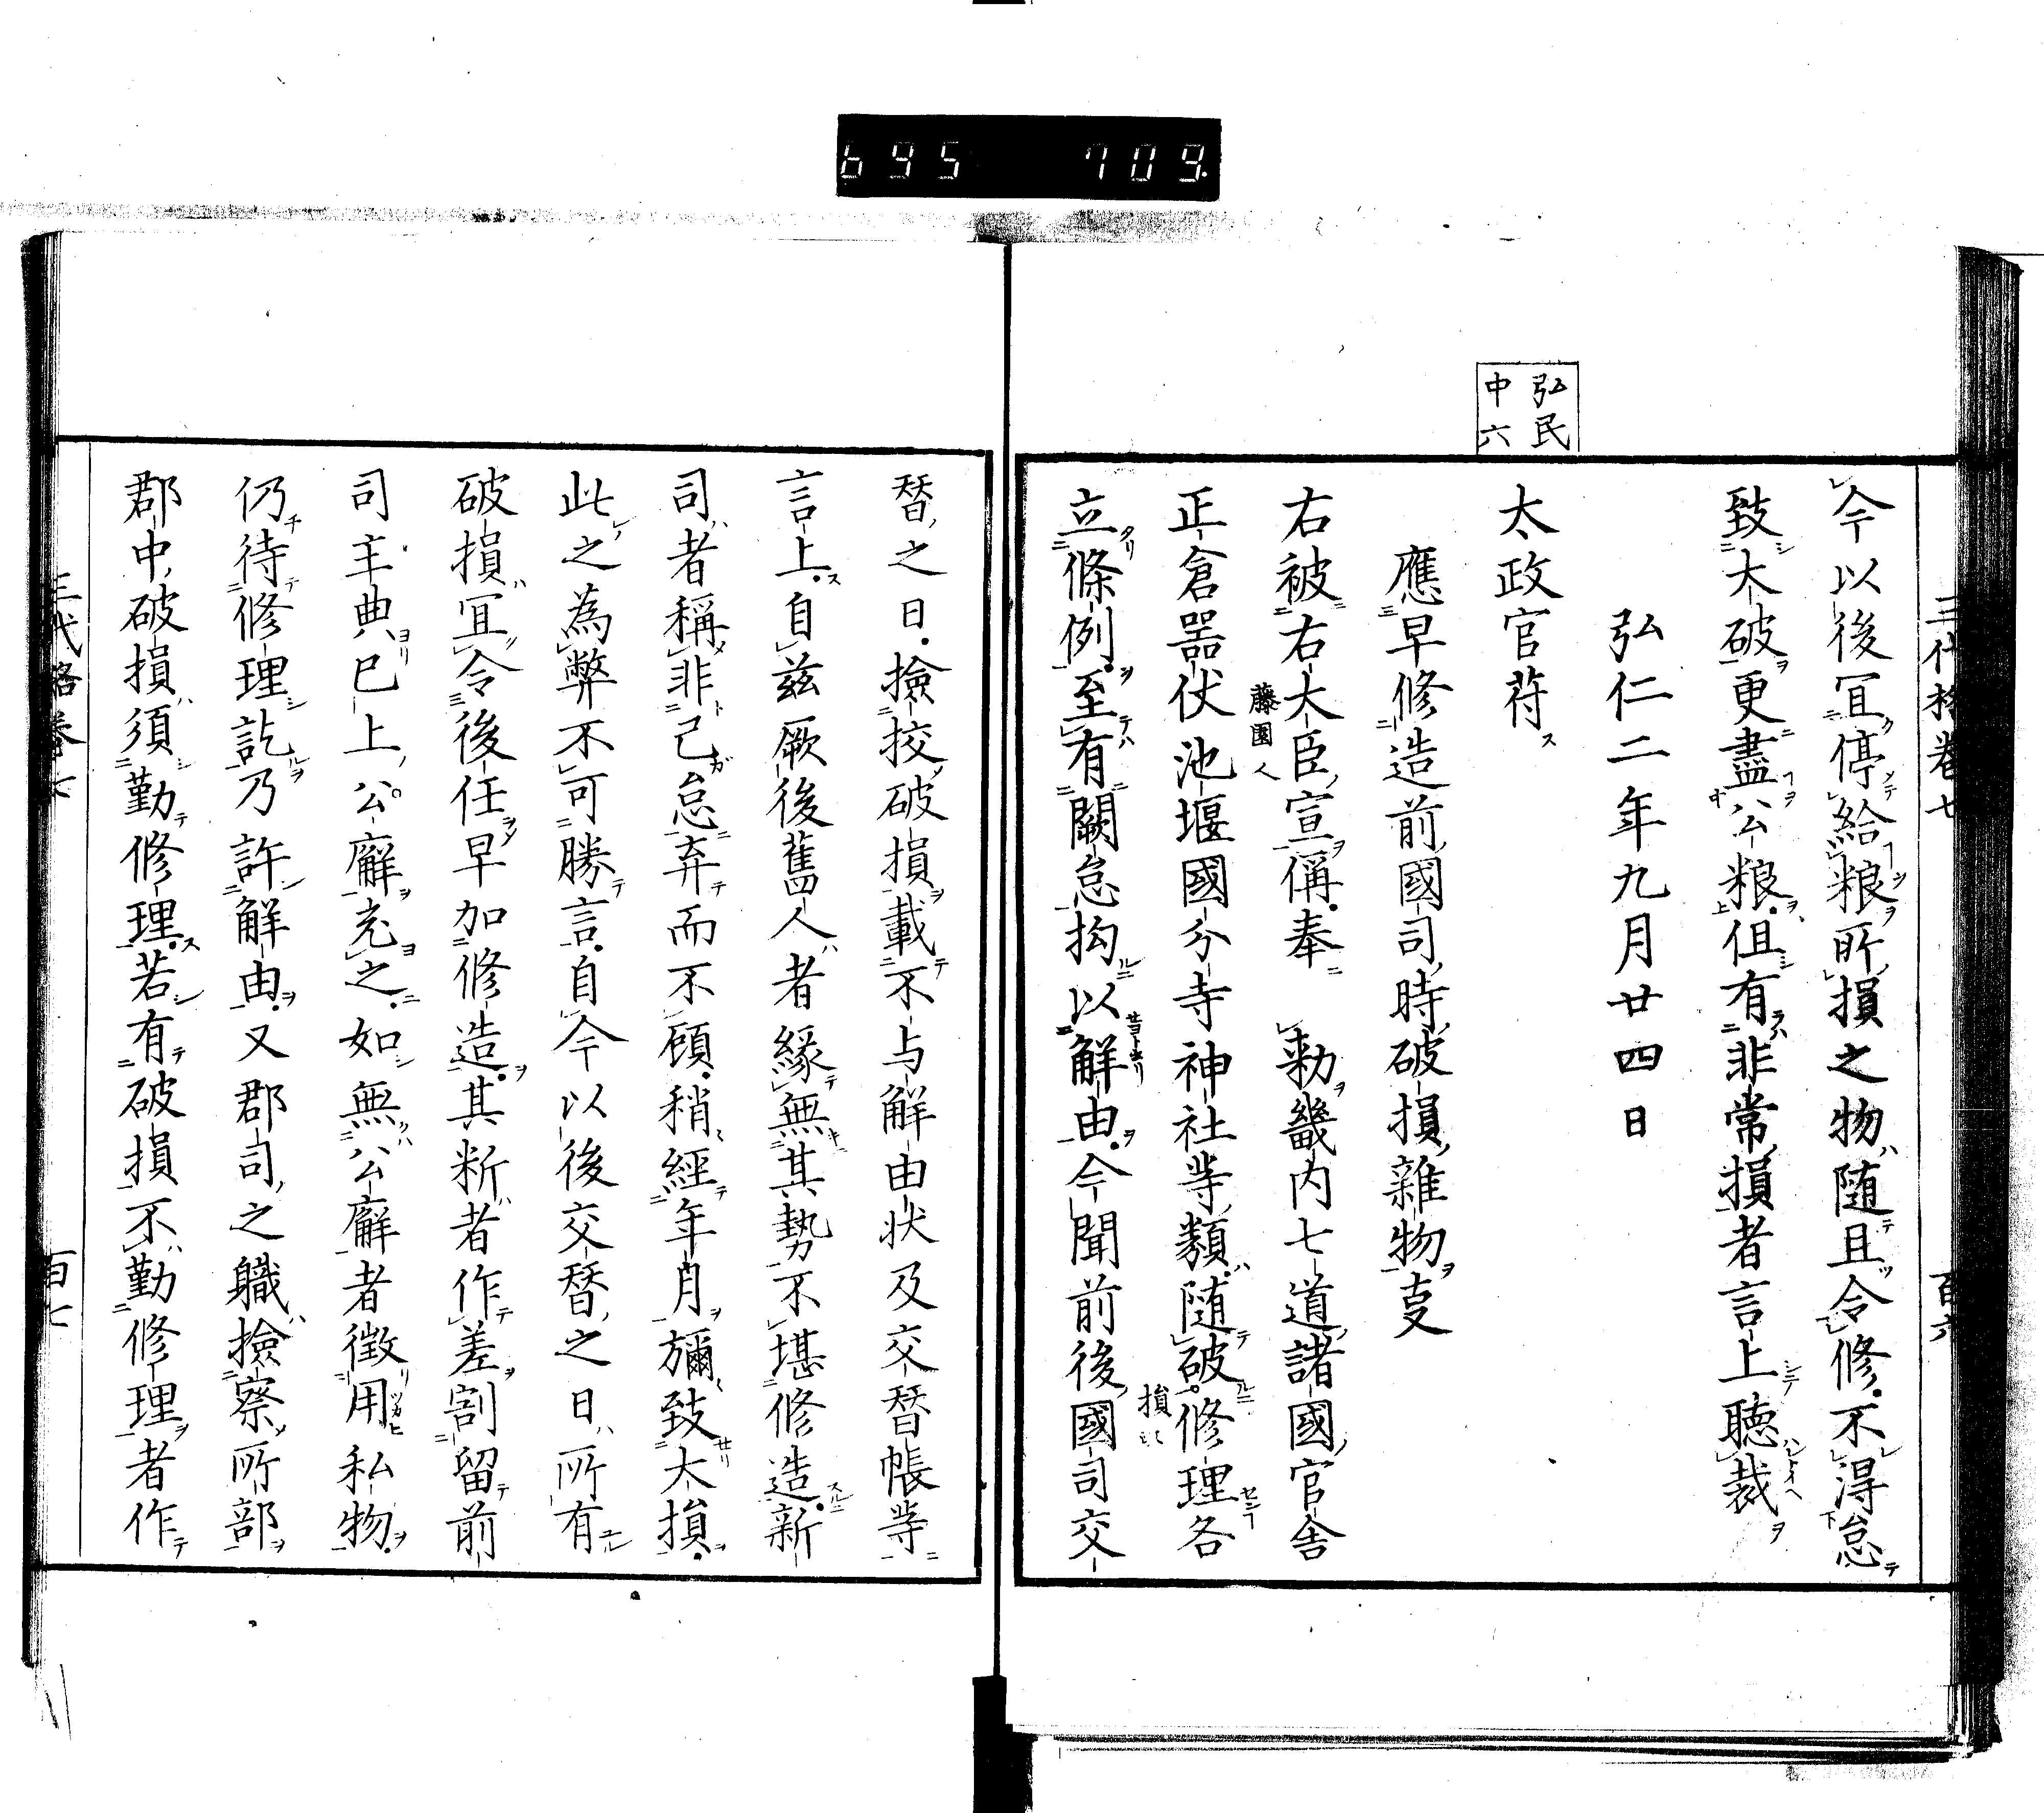 695 709
三代格卷七 百六
今以後冝停給粮所損之物随且令修不得怠
致大破更盡公粮但有非常損者言上聴裁
弘仁二年九月廿四日
弘民
中六
太政官苻
應早修造前國司時破損雜物㕝
右被右大臣宣偁奉 勅畿内七道諸國官舎
藤園人
正倉噐仗池堰國分寺神社䓁類随破修理各
損
立條例至有闕怠拘以解由今聞前後國司交
替之日撿挍破損載不与解由状及交替帳䓁
言上自兹厥後舊人者緣無其勢不堪修造新
司者稱非己怠弃而不顧稍經年月彌致大損
此之為弊不可勝言自今以後交替之日所有
破損冝令後任早加修造其断者作差割留前
司主典已上公廨充之如無公廨者徴用私物
仍待修理訖乃許解由又郡司之職撿察所部
郡中破損須勤修理若有破損不勤修理者作
三代格卷七 百七